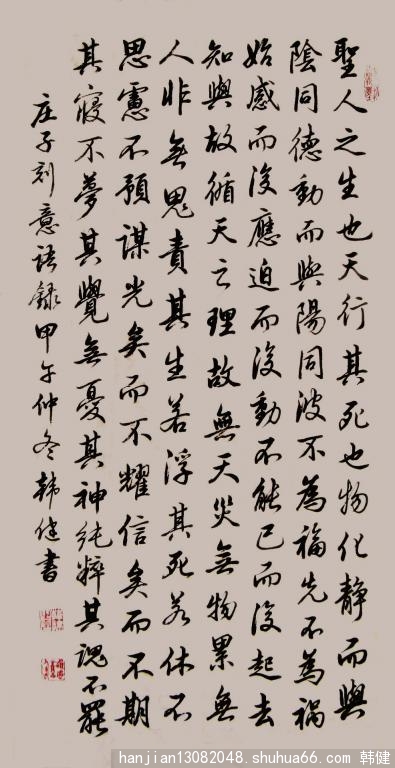 聖人之生也天行其死也物化静而與
陰同德動而與陽同波不為福先不為禍
始感而後應迫而後動不能已而後起去
知與故循天之理故無天災無物累無
人非無鬼責其生若浮其死若休不
思慮不預謀光矣而不耀信矣而不期
其寢不夢其覺無憂其神純粹其魂不罷
庄子刻意语録甲午仲冬韩健書
hanjian13082048.shuhua66.com 韩健